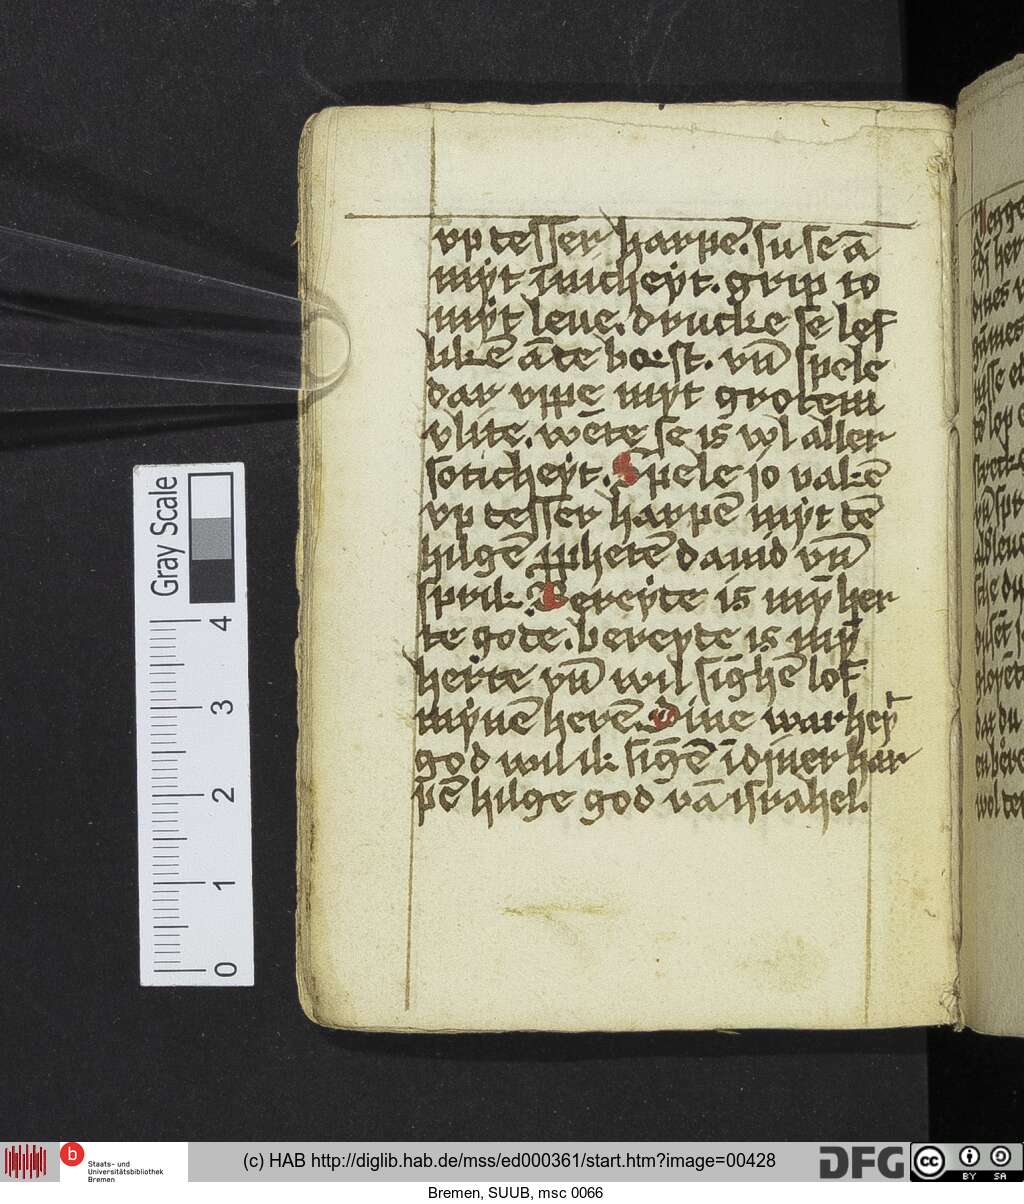 vp tesser harpē. su se ā
myt īnicheyt. grip to
myt leue. drucke se lef
likē ā te borst. vn̄ spele
dar vppe myt grotem
vlite. wēte se is vyl aller
soticheyt. Spele io vakē
vp tesser harpē myt tē
hilgē ppheten dauid vn̄
sprik. Bereyte is mȳ her
te gote. bereyte is mȳ
herte vn̄ wil sīghē lof
mynē herē. Dine warheyt
god wil ik sīgē ī diner har
pē hilge god vā israhel.
Gray Scale
4
3
2
1
0
b
Staats- und
Universitätsbibliothek
Bremen
(c) HAB http://diglib.hab.de/mss/ed000361/start.htm?image=00428
DFG
cc
BY SA
Bremen, SUUB, msc 0066